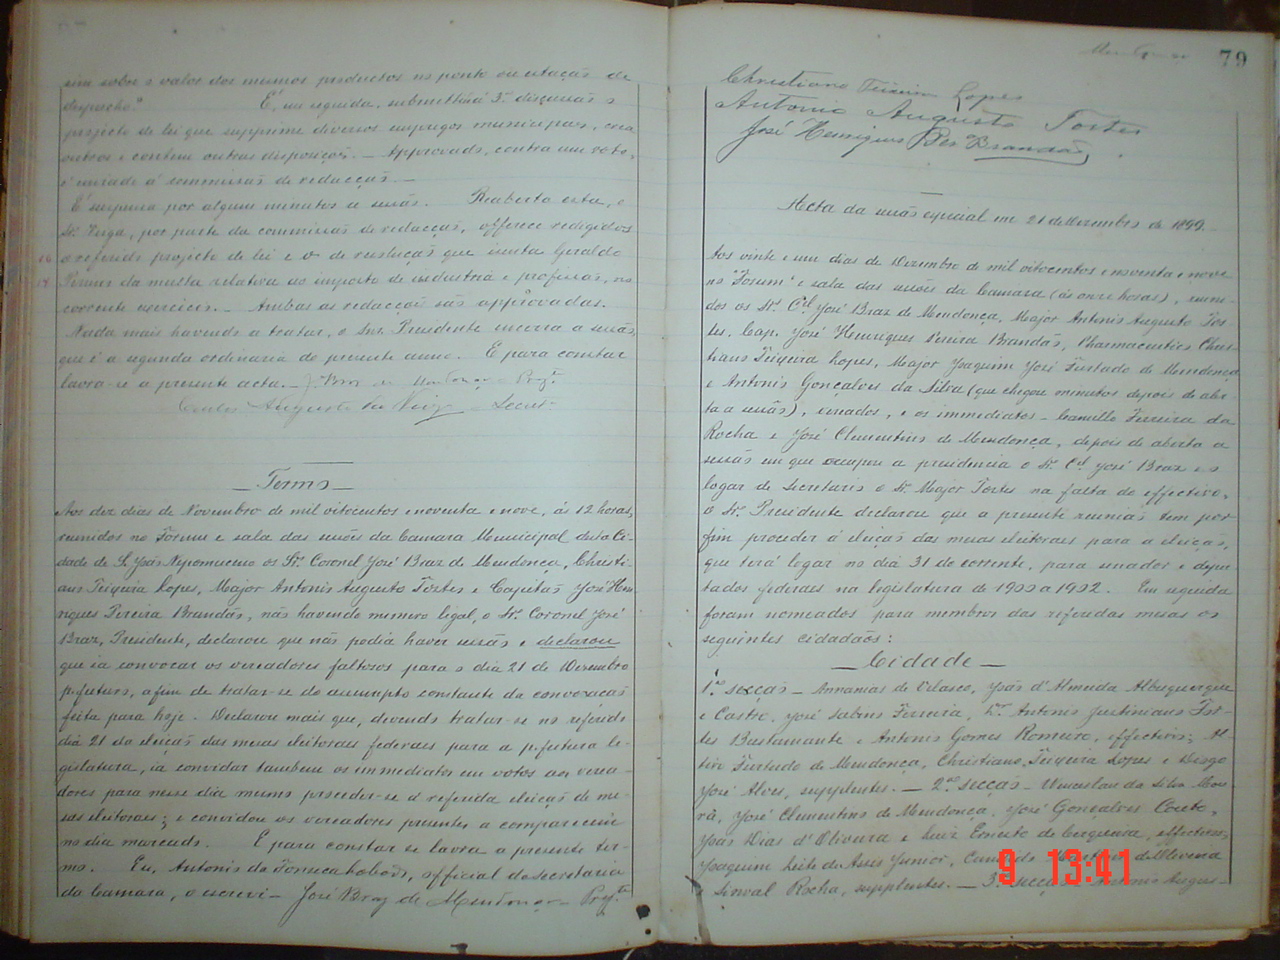 sim sobre o valor dos mesmos productos no ponto ou estação de
despacho." É, em seguida, submettido á 3ª discussão o
projecto de lei que supprime diversos empregos municipaes, crea
outros e contem outras disposições. — Approvado, contra um voto,
é enviado á commissão de redacção. —
É suspensa por alguns minutos a sessão. Reaberta esta, o
Sr. Veiga, por parte da commissão de redacção, offerece redigidos
o referido projecto de lei e o de resolução que isenta Geraldo
da multa relativa ao imposto de industria e profissão, no
corrente exercicio. — Ambas as redacções são approvadas.
Nada mais havendo a tratar, o Snr. Presidente encerra a sessão,
que é a segunda ordinaria do presente anno. E para constar
lavra-se a presente acta. — J. Braz de Mendonça — Prezte.
Carlos Augusto da Veiga — Secret.
— Termo —
Aos dez dias de Novembro de mil oitocentos e noventa e nove, ás 12 horas,
reunidos no Forum e sala das sessões da Camara Municipal desta Ci-
dade de S. João Nepomuceno os Srs. Coronel José Braz de Mendonça, Christi-
ano Teixeira Lopes, Major Antonio Augusto Tortes e Capitão José Hen-
riques Pereira Brandão, não havendo numero legal, o Sr. Coronel José
Braz, Presidente, declarou que não podia haver sessão e declarou
que ia convocar os vereadores faltosos para o dia 21 de Dezembro
p. futuro, a fim de tratar-se do assumpto constante da convocação
feita para hoje. Declarou mais que, devendo tratar-se no referido
dia 21 da eleição das mesas eleitoraes federaes para a p. futura le-
gislatura, ia convidar tambem os immediatos em votos aos verea-
dores para nesse dia mesmo proceder-se á referida eleição de me-
sas eleitoraes; e convidou os vereadores presentes a comparecerem
no dia marcado. E para constar se lavra o presente ter-
mo. Eu, Antonio da Fonseca Lobado, official da secretaria
da Camara, o escrevi — José Braz de Mendonça — Prezte.
79
Christiano Teixeira Lopes
Antonio Augusto Tortes
José Henriques Per Brandão
Acta da sessão especial em 21 de Dezembro de 1899.
Aos vinte e um dias de Dezembro de mil oitocentos e noventa e nove
no "Forum" e sala das sessões da Camara (ás onze horas), reuni-
dos os Srs. Cel. José Braz de Mendonça, Major Antonio Augusto Tor-
tes, Cap. José Henriques Pereira Brandão, Pharmaceutico Chris-
tiano Teixeira Lopes, Major Joaquim José Furtado de Mendonça
e Antonio Gonçalves da Silva (que chegou minutos depois de aber-
ta a sessão), vereadores, e os immediatos — Camillo Ferreira da
Rocha e José Clementino de Mendonça, depois de aberta a
sessão em que occupou a presidencia o Sr. Cel. José Braz e o
logar de Secretario o Sr. Major Tortes na falta do effectivo,
o Sr. Presidente declarou que a presente reunião tem por
fim proceder á eleição das mesas eleitoraes para a eleição,
que terá logar no dia 31 do corrente, para senador e depu-
tados federaes na legislatura de 1900 a 1902. Em seguida
foram nomeados para membros das referidas mesas os
seguintes cidadãos:
— Cidade —
1ª secção — Annanias de Velasco, João d'Almeida Albuquerque
e Castro, José Sabino Ferreira, Dr. Antonio Justiniano Tor-
tes Bustamante e Antonio Gomes Romeiro, effectivos; Al-
tivo Furtado de Mendonça, Christiano Teixeira Lopes e Diogo
José Alves, supplentes. — 2ª secção — Wenceslau da Silva Mou-
rã, José Clementino de Mendonça, José Gonçalves Couto,
João Dias d'Oliveira e Luiz Ernesto de Cerqueira, effectivos;
Joaquim Leite de Assis Junior, de Oliveira
e Sinval Rocha, supplentes. — 3ª secção — Antonio Augus-
9 13:41